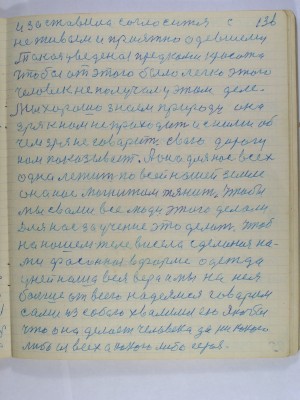 и заставила согласится с 136
не живым и приятно одевшему
Такая ведена предками красота
чтобы от этого было легко этого
человек не получал у этом деле.
Мы хорошо знаем природу она
зря к нам не приходит и с ними об
чем зря не говорит. свою дорогу
нам показывает. А она для нас всех
одна летит по всей нашей земле
она нас магнитом тянит. Чтобы
мы с вами все люди этого делали
для нас заучение это делать, чтоб
на нашем теле висела сделаная на-
ми фасонная в форме одежда
у ней наша вся вера и мы на нея
больше от всего надеемся говорим
сами из собою хвалимся ею якобы
что она делает человека за ни какого
либо из всех а какого либо героя.